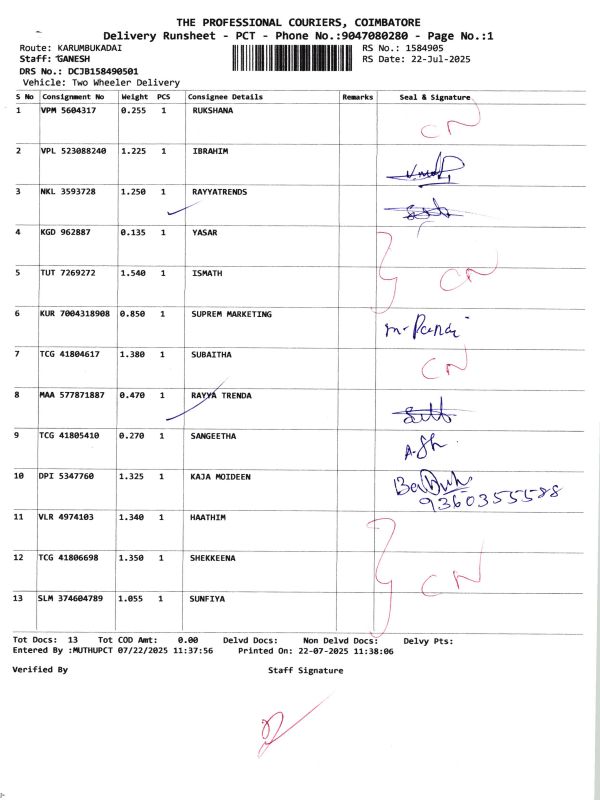 THE PROFESSIONAL COURIERS, COIMBATORE
Delivery Runsheet - PCT - Phone No.:9047080280 - Page No.:1
Route: KARUMBUKADAI RS No.: 1584905
Staff: GANESH RS Date: 22-Jul-2025
DRS No.: DCJB158490501
Vehicle: Two Wheeler Delivery
S No Consignment No Weight PCS Consignee Details Remarks Seal & Signature
1 VPM 5604317 0.255 1 RUKSHANA CN
2 VPL 523088240 1.225 1 IBRAHIM
3 NKL 3593728 1.250 1 RAYYATRENDS
4 KGD 962887 0.135 1 YASAR
5 TUT 7269272 1.540 1 ISMATH CN
6 KUR 7004318908 0.850 1 SUPREM MARKETING
7 TCG 41804617 1.380 1 SUBAITHA CN
8 MAA 577871887 0.470 1 RAYYA TRENDA
9 TCG 41805410 0.270 1 SANGEETHA
10 DPI 5347760 1.325 1 KAJA MOIDEEN
9360355588
11 VLR 4974103 1.340 1 HAATHIM
12 TCG 41806698 1.350 1 SHEKKEENA CN
13 SLM 374604789 1.055 1 SUNFIYA
Tot Docs: 13 Tot COD Amt: 0.00 Delvd Docs: Non Delvd Docs: Delvy Pts:
Entered By :MUTHUPCT 07/22/2025 11:37:56 Printed On: 22-07-2025 11:38:06
Verified By Staff Signature